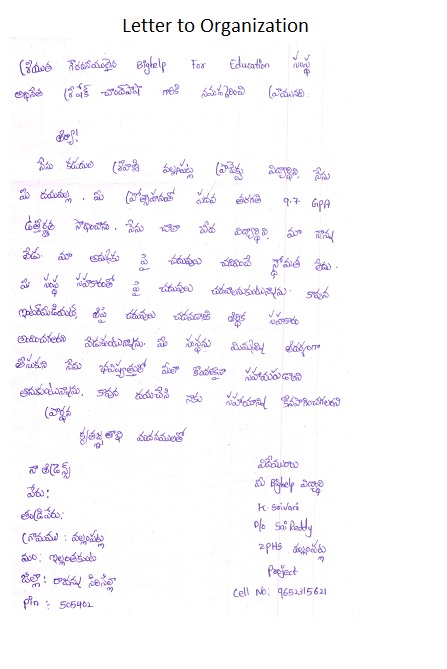 Letter to Organization
శ్రీయుత గౌరవనీయులైన Bighelp For Education సంస్థ
అధినేత శ్రీ షేక్ చాంద్‌పాషా గారికి నమస్కరించి వ్రాయునది.
అయ్యా!
నేను కడుదుల శ్రీవాణి వల్లంపట్ల విద్యార్థిని, నేను
మీ దయవల్ల, మీ ప్రోత్సాహంతో పదవ తరగతి 9.7 GPA
ఉత్తీర్ణత సాధించాను. నేను చాలా పేద విద్యార్థిని, మా నాన్న
లేడు. మా అమ్మకు పై చదువులు చదివించే స్తోమత లేదు.
మీ సంస్థ సహకారంతో పై చదువులు చదవాలనుకుంటున్నాను. కావున
ఇంటర్మీడియట్, పై చదువులు చదవడానికి ఆర్థిక సహకారం
అందించగలరని వేడుకుంటున్నాను. మీ సంస్థను మిమ్మల్ని ఆదర్శంగా
తీసుకుని నేను భవిష్యత్తులో మరి కొందరికైనా సహాయపడాలని
అనుకుంటున్నాను. కావున దయచేసి నాకు సహాయాన్ని కొనసాగించగలరని
ప్రార్థన
కృతజ్ఞతాభి వందనములతో
నా అడ్రస్
పేరు:
తండ్రిపేరు:
గ్రామము: వల్లంపట్ల
మం: ఇల్లంతకుంట
జిల్లా: రాజన్న సిరిసిల్లా
pin: 505402
విధేయురాలు
మీ Bighelp విద్యార్థి
K. Srivani
D/o Sai Reddy
ZPHS వల్లంపట్ల
Project
Cell No: 9652315621